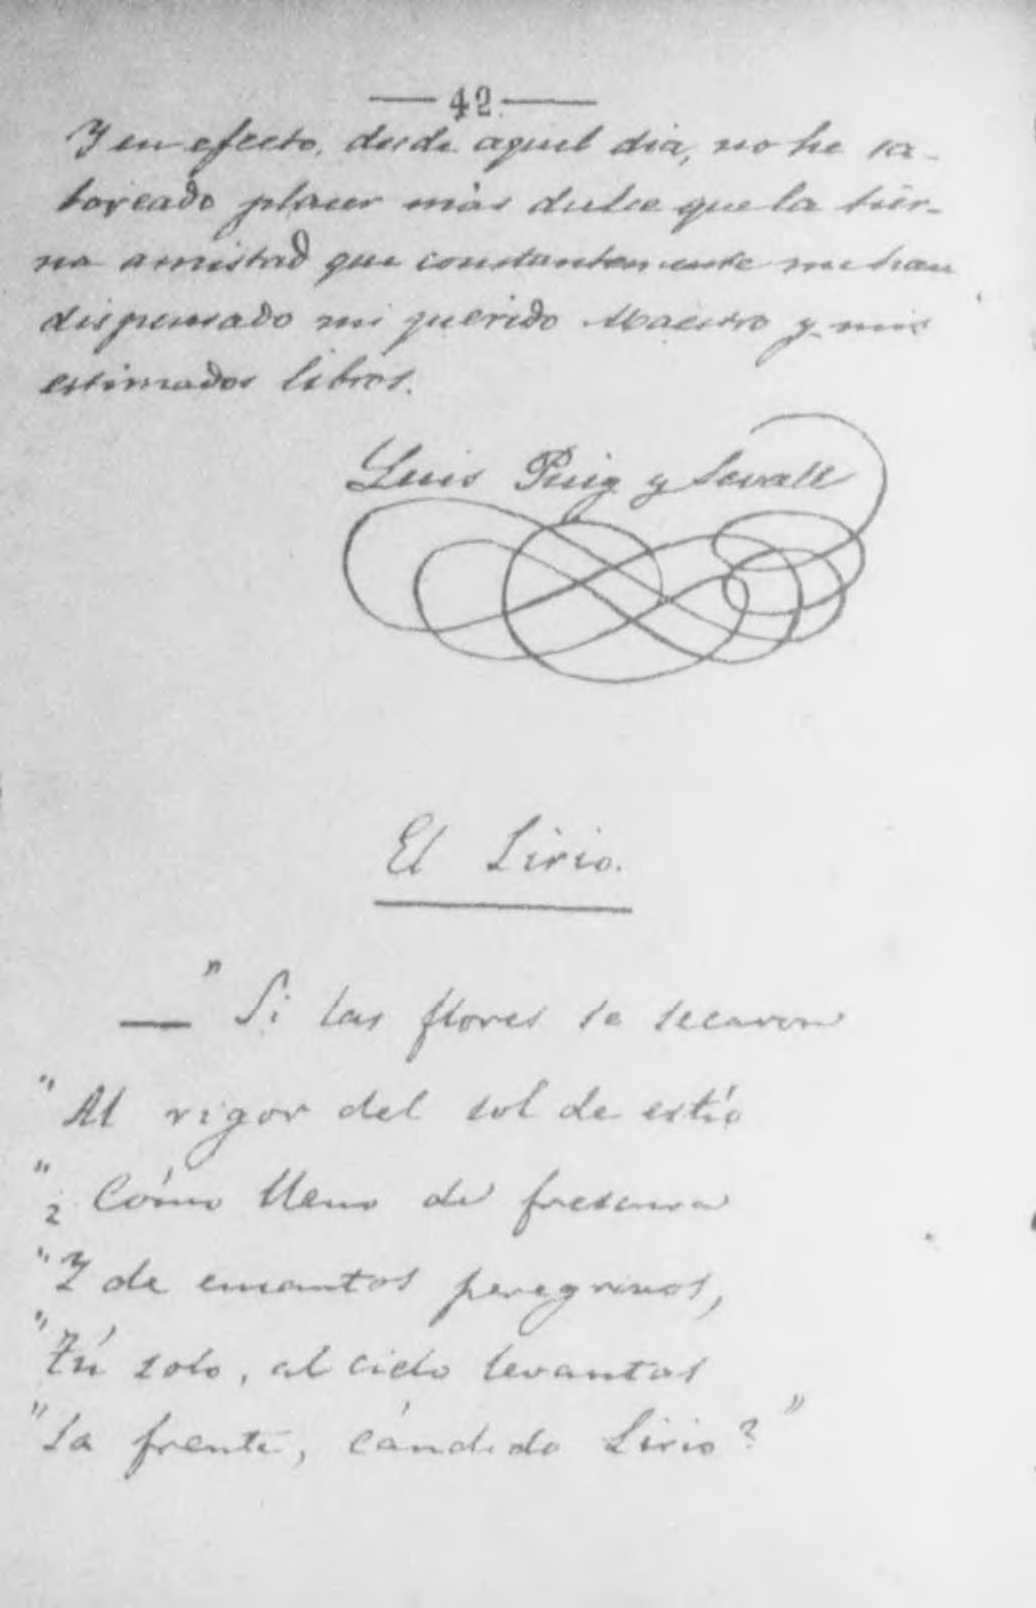 — 42 —
Y en efecto, desde aquel dia, no he sa-
boreado placer más dulce que la tier-
na amistad que constantemente me han
dispensado mi querido Maestro y mis
estimados libros.
Luis Puig y Sevall
El Lirio.
—" Si las flores se secaron
" Al rigor del sol de estío
" ¿Cómo lleno de frescura
" Y de encantos peregrinos,
" Tú solo, al cielo levantas
" La frente, cándido Lirio? "